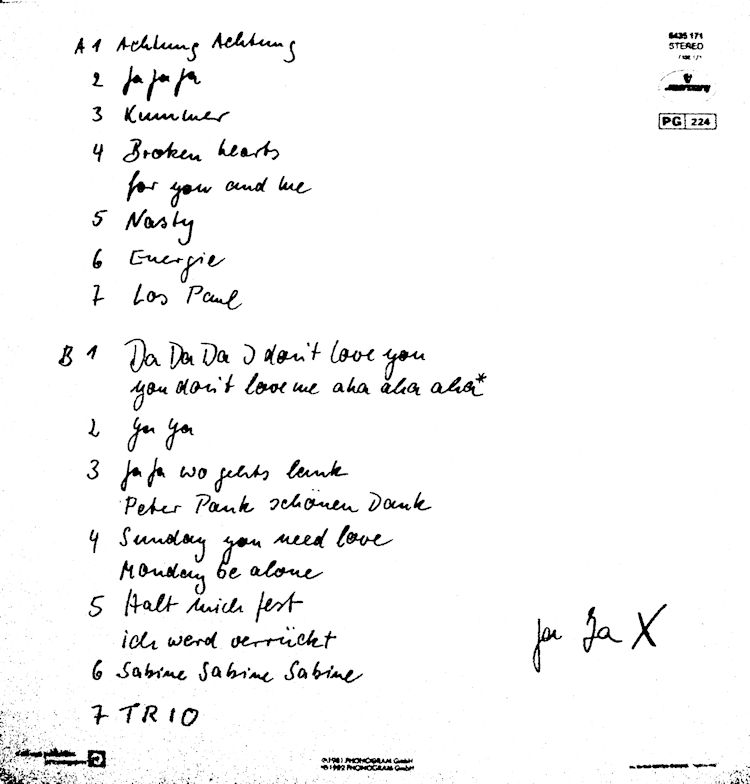 A 1 Achtung Achtung
2 Ja Ja Ja
3 Kummer
4 Broken hearts
for you and me
5 Nasty
6 Energie
7 Los Paul
B 1 Da Da Da I don't love you
you don't love me aha aha aha*
2 Ya Ya
3 Ja Ja wo gehts lank
Peter Pank schönen Dank
4 Sunday you need love
Monday be alone
5 Halt mich fest
ich werd verrückt
6 Sabine Sabine Sabine
7 TRIO
6435 171
STEREO
mercury
PG 224
Ja Ja X
℗ 1981 PHONOGRAM GmbH
*℗ 1982 PHONOGRAM GmbH